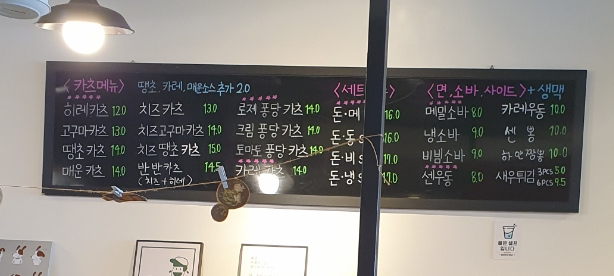 <카츠메뉴> 땡초, 카레, 매운소스 추가 2.0
히레카츠 12.0
고구마카츠 13.0
땡초 카츠 14.0
매운 카츠 14.0
치즈카츠 13.0
치즈고구마카츠 14.0
치즈 땡초 카츠 15.0
반반카츠 14.5
(치즈+히레)
로제 퐁당 카츠 14.0
크림 퐁당 카츠 14.0
토마토 퐁당 카츠 14.0
카레 카츠 14.0
<세트
돈·메 16.0
돈·동 16.0
돈·비
돈·냉
<면, 소바, 사이드> + 생맥
메밀소바 8.0
냉소바 9.0
비빔소바 9.0
센우동 8.0
카레우동 10.0
센 뽕 10.0
하얀짬뽕 10.0
새우튀김 3pcs 5.0
6pcs 9.5
물은 셀프
입니다